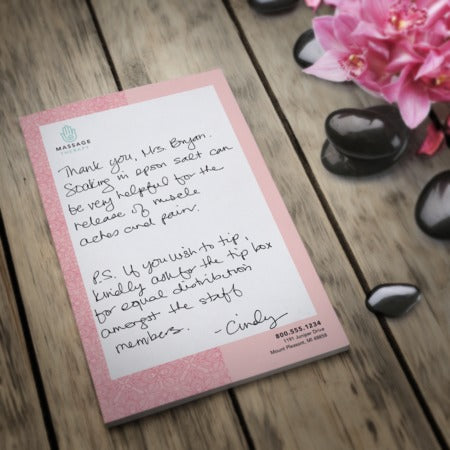 MASSAGE
THERAPY
Thank you, Mrs. Bryan.
Soaking in epson salt can
be very helpful for the
release of muscle
aches and pain.
P.S. If you wish to tip,
kindly ask for the tip box
for equal distribution
amongst the staff
members. - Cindy
800.555.1234
1191 Juniper Drive
Mount Pleasant, MI 48858